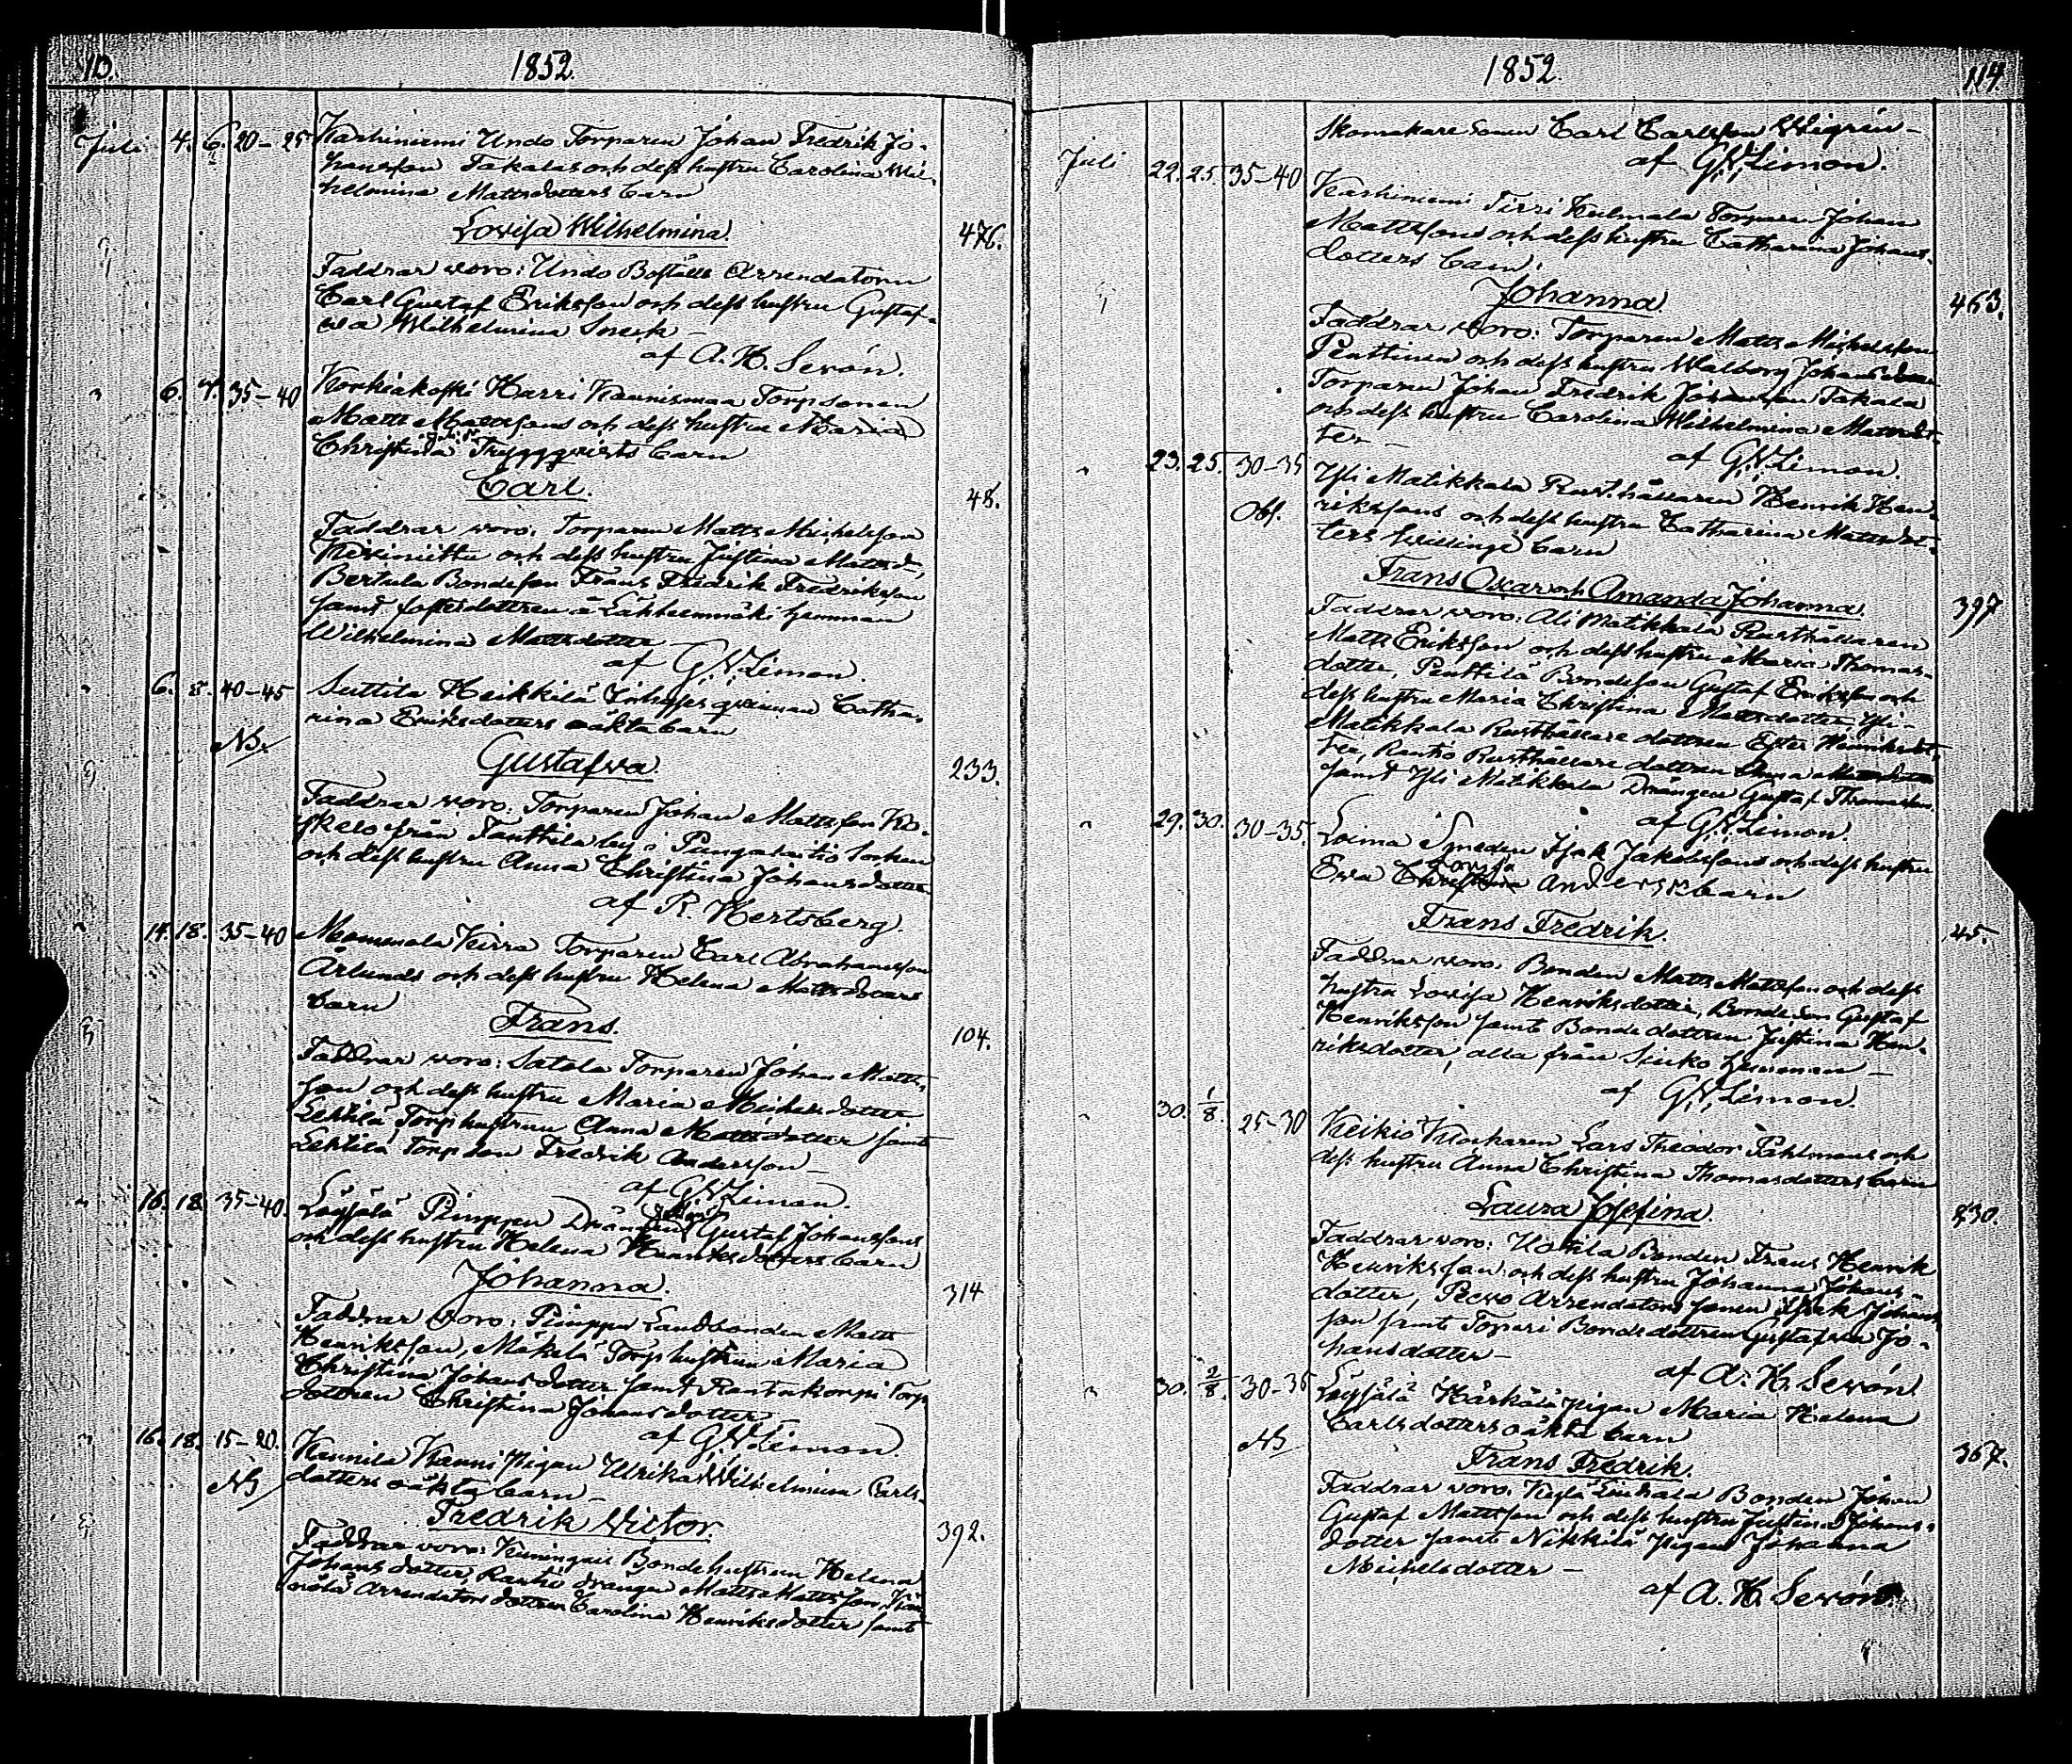 10. 1852.
Juli 4. 6. 20-25 Karhiniemi Undo Torparen Johan Fredrik Jo-
hansson Takalas och dess hustru Carolina Wil-
helmina Mattsdotters barn
Lovisa Wilhelmina. 476.
Faddrar woro: Undo Boställs Arrendatorn
Carl Gustaf Eriksson och dess hustru Gustaf-
wa Wilhelmina Sneck -
af A. H. Sevón.
" 6. 7. 35-40 Korkiakoski Harri Kaunismaa Torpsonen
Matts Mattssons och dess hustru Maria
Christina Tryggqvists barn
Carl. 48.
Faddrar woro: Torparen Matts Michelsson
Kiviniittu och dess hustru Justina Mattsd.,
Bertula Bondeson Frans Fredrik Fredriksson
samt fosterdottren å Lähteenmäki hemman
Wilhelmina Mattsdotter -
af G. V. Limon.
" 6. 8. 40-45 Suttila Heikkilä Inhyses qvinnan Catha-
rina Eriksdotters oäkta barn
NB.
Gustafva 233.
Faddrar woro: Torparen Johan Mattsson Ko-
skelo från Tanttila by i Pungalaitio Socken
och dess hustru Anna Christina Johansdotter
af R. Hertsberg.
" 14. 18. 35-40 Mommola Kirra Torparen Carl Abrahamsson
Ärlunds och dess hustru Helena Mattsdotters
barn
Frans. 104.
Faddrar woro: Satola Torparen Johan Matts-
son och dess hustru Maria Michelsdotter
Lehtilä Torphustrun Anna Mattsdotter samt
Lehtilä Torpson Fredrik Andersson -
af G. V. Limon.
" 16. 18. 35-40. Löysälä Pimppu Drängen Gustaf Johanssons
och dess hustru Helena Henriksdotters barn
Johanna. 314
Faddrar woro: Pimppu Landbonden Matts
Henriksson, Mäkelä Torphustrun Maria
Christina Johansdotter samt Rantakorpi Torp
dottren Christina Johansdotter -
af G. V. Limon
" 16. 18. 15-20. Kannila Kanni Pigan Ulrika Wilhelmina Carls-
dotters oäkta barn -
NB
Fredrik Victor. 392.
Faddrar woro: Kuningais Bondehustrun Helena
Johansdotter, Rantio drängen Matts Mattsson,
Arrendators dottren Carolina Henriksdotter samt
1852. 114.
Skomakare Sonen Carl Carlsson Wigrén -
af G. V. Limon.
Juli 22. 25. 35-40 Karhiniemi Tirri Kulmala Torpare Johan
Mattssons och dess hustru Catharina Johans-
dotters barn,
Johanna 463.
Faddrar woro: Torparen Matts Michelsson
Penttinen och dess hustru Walborg Johansdotter
Torparen Johan Fredrik Johansson Takala
och dess hustru Carolina Wilhelmina Mattsdot-
ter -
af G. V. Limon.
" 23. 25. 30-35 Yli Matikkala Rusthållaren Henrik Hen-
Obs. rikssons och dess hustru Catharina Mattsdot-
ters tvillinge barn
Frans Oscar och Amanda Johanna 397
Faddrar woro: Ali Matikkala Rusthållaren
Matts Eriksson och dess hustru Maria Thomas-
dotter, Penttilä Bondeson Gustaf Eriksson och
dess hustru Maria Christina Mattsdotter Yli-
Matikkala Rusthållare dottren Ester Henriksdot-
ter, Rantio Rusthållare dottren Anna Mattsdotter
samt Yli Matikkala Drängen Gustaf Thomasson.
af G. V. Limon.
" 29. 30. 30-35. Loima Smeden Isak Jakobssons och dess hustru
Lovisa
Eva Christina Anders barn
Frans Fredrik. 45.
Faddrar woro: Bonden Matts Mattsson och dess
hustru Lovisa Henriksdotter, Bonde Son Gustaf
Henriksson samt Bonde dottren Justina Hen-
riksdotter, alla från Sinko hemman -
af G. V. Limon.
" 30. 1/8. 25-30 Keikiö Klockaren Lars Theodor Påhlmans och
dess hustru Anna Christina Thomasdotters barn
Laura Josefina. 230.
Faddrar woro: Uotila Bonden Frans Henrik
Henriksson och dess hustru Johanna Johans-
dotter, Pecvo Arrendators sonen Isak Johans-
son samt Topari Bondedottren Gustafwa Jo-
hansdotter -
af A. H. Sevón
" 30. 2/8. 30-35 Löysälä Härkälä Pigan Maria Helena
Carlsdotters oäkta barn
NB
Frans Fredrik. 367.
Faddrar woro: Kylä Liuhala Bonden Johan
Gustaf Mattsson och dess hustru Justina Johans-
dotter samt Nikkilä Pigan Johanna
Michelsdotter -
af A. H. Sevón